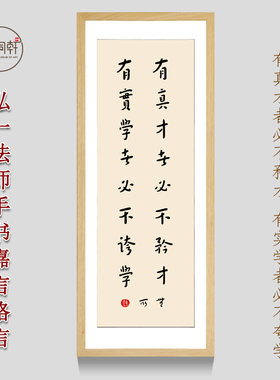 有真才者必不矜才 有实学者必不夸学
有真才者必不矜才
有實學者必不誇學
弘一法师手书嘉言格言